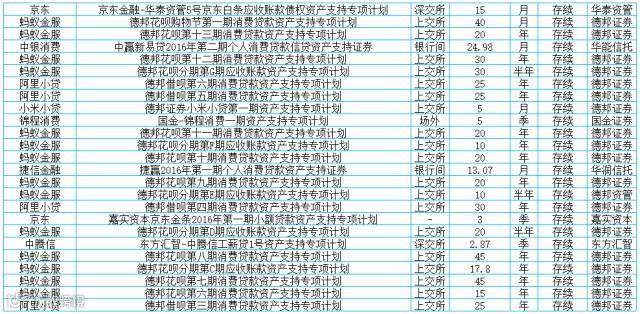 京东 京东金融-华泰资管5号京东白条应收账款债权资产支持专项计划 深交所 15 月 存续 华泰资管
蚂蚁金服 德邦花呗购物节第一期消费贷款资产支持专项计划 上交所 40 月 存续 德邦证券
蚂蚁金服 德邦花呗第十三期消费贷款资产支持专项计划 上交所 20 年 存续 德邦证券
中银消费 中赢新易贷2016年第二期个人消费贷款信贷资产支持证券 银行间 24.98 月 存续 华能信托
蚂蚁金服 德邦花呗第十二期消费贷款资产支持专项计划 上交所 30 年 存续 德邦证券
蚂蚁金服 德邦花呗分期第G期应收账款资产支持专项计划 上交所 30 半年 存续 德邦证券
阿里小贷 德邦借呗第六期消费贷款资产支持专项计划 上交所 25 年 存续 德邦证券
阿里小贷 德邦借呗第五期消费贷款资产支持专项计划 上交所 25 年 存续 德邦证券
小米小贷 德邦证券小米小贷第一期资产支持专项计划 上交所 5 月 存续 德邦证券
锦程消费 国金-锦程消费一期资产支持专项计划 场外 5 季 存续 国金证券
蚂蚁金服 德邦花呗第十一期消费贷款资产支持专项计划 上交所 20 年 存续 德邦证券
蚂蚁金服 德邦花呗分期第F期应收账款资产支持专项计划 上交所 10 年 存续 德邦证券
蚂蚁金服 德邦花呗第十期消费贷款资产支持专项计划 上交所 20 年 存续 德邦证券
捷信金融 捷赢2016年第一期个人消费贷款资产支持证券 银行间 13.07 月 存续 华润信托
蚂蚁金服 德邦花呗第九期消费贷款资产支持专项计划 上交所 20 年 存续 德邦证券
蚂蚁金服 德邦花呗分期第E期应收账款资产支持专项计划 上交所 10 半年 存续 德邦证券
阿里小贷 德邦借呗第四期消费贷款资产支持专项计划 上交所 30 年 存续 德邦证券
京东 嘉实资本京东金条2016年第一期小额贷款资产支持专项计划 - 3 季 存续 嘉实资本
蚂蚁金服 德邦花呗分期第D期应收账款资产支持专项计划 上交所 20 半年 存续 德邦证券
中腾信 东方汇智-中腾信工薪贷1号资产支持专项计划 深交所 2.87 季 存续 东方汇智
蚂蚁金服 德邦花呗第八期消费贷款资产支持专项计划 上交所 45 年 存续 德邦证券
蚂蚁金服 德邦花呗分期第C期应收账款资产支持专项计划 上交所 17.8 年 存续 德邦证券
蚂蚁金服 德邦花呗第七期消费贷款资产支持专项计划 上交所 45 年 存续 德邦证券
蚂蚁金服 德邦花呗第六期消费贷款资产支持专项计划 上交所 15 年 存续 德邦证券
阿里小贷 德邦借呗第三期消费贷款资产支持专项计划 上交所 25 年 存续 德邦证券